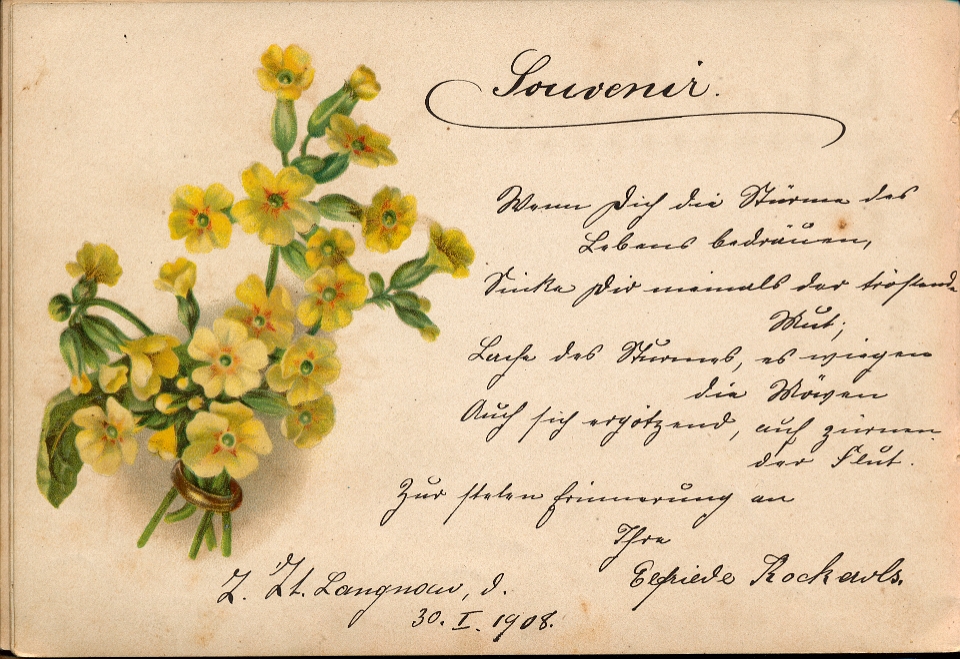 Souvenir.
Wenn Dich die Stürme des
Lebens bedräuen,
Sinke Dir niemals der tröstende
Mut;
Lache des Sturmes, es wiegen
die Möven
Auch sich ergötzend, auf zürnen
der Flut.
Zur steten Erinnerung an
Ihre
Z. Zt. Langnau, d.
30. I. 1908.